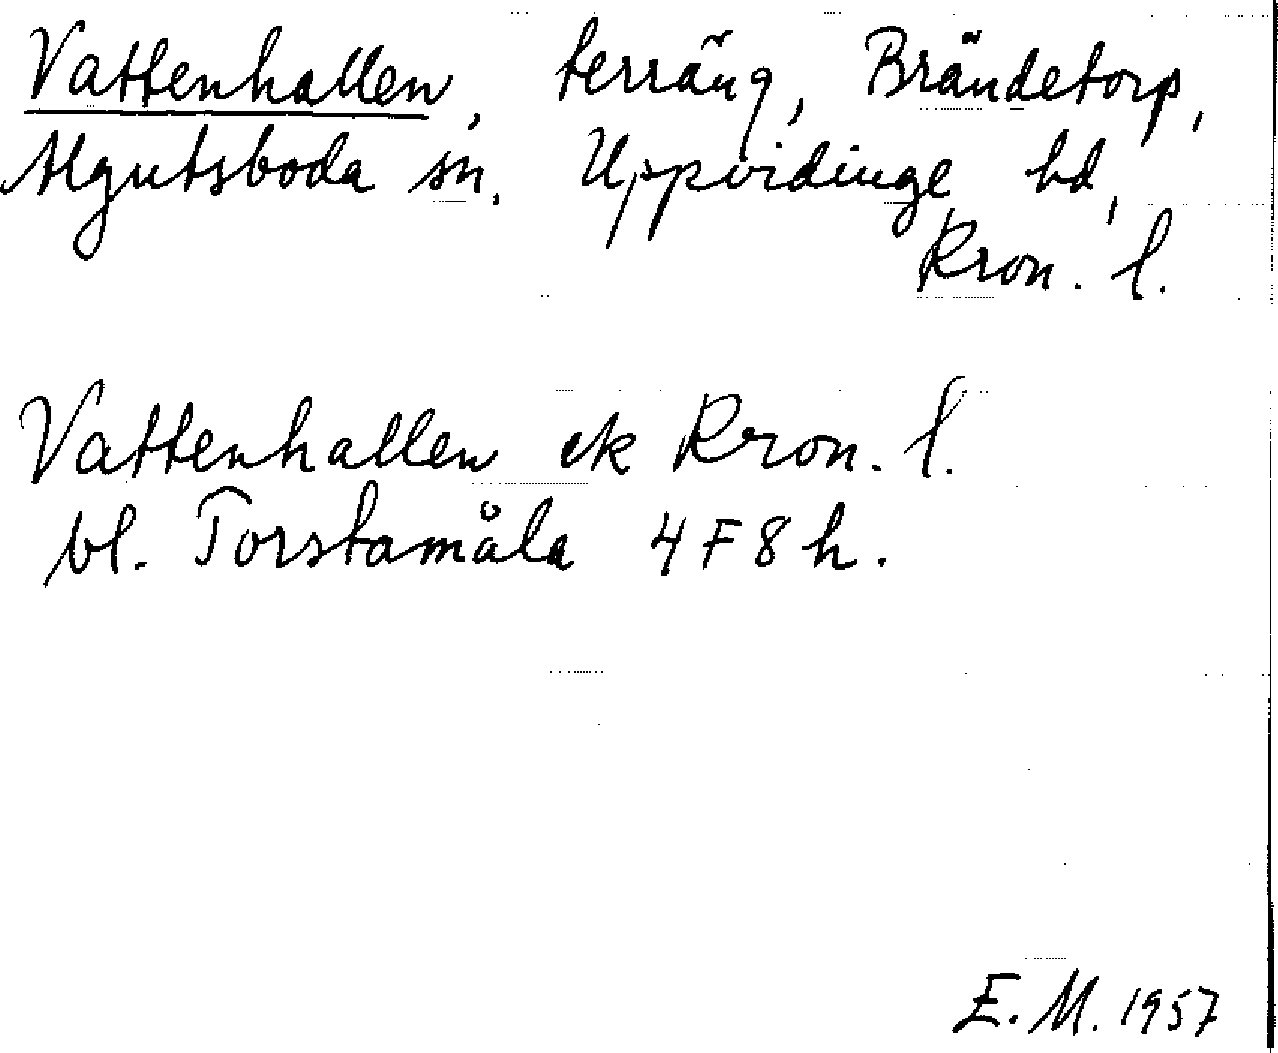 Vattenhallen, terräng, Brändetorp,
Algutsboda sn, Uppvidinge hd,
Kron. l.
Vattenhallen ek Kron. l.
bl. Torstamåla 4F8h.
E.M. 1957